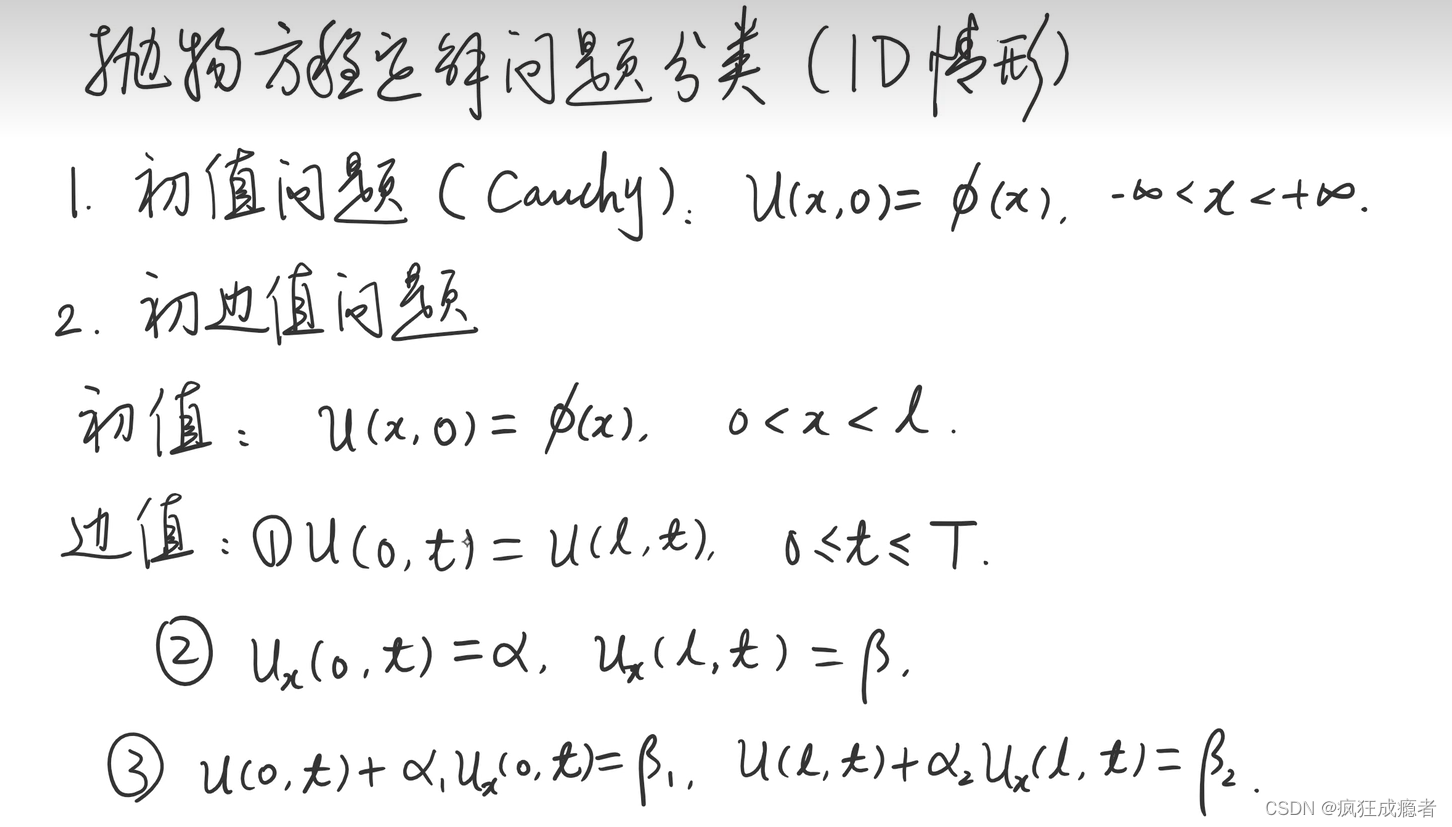 抛物方程定解问题分类(1D情形)
1. 初值问题(Cauchy): u(x,0)= ϕ(x), -∞<x<+∞.
2. 初边值问题
初值: u(x,0)= ϕ(x), 0<x<l.
边值: ①u(0,t)=u(l,t), 0≤t≤T.
② u_x(0,t)=α, u_x(l,t)=β.
③ u(0,t)+α₁u_x(0,t)=β₁, u(l,t)+α₂u_x(l,t)=β₂.
CSDN @疯狂成瘾者